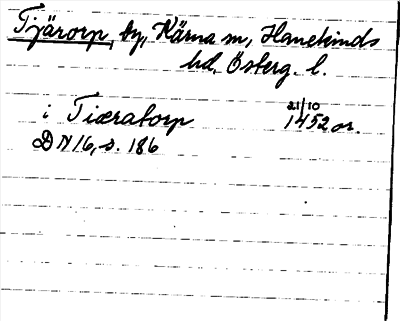 Tjärorp, by, Kärna sn, Hanekinds
hd, Österg. l.
i Tiæratorp 21/10 1452 or.
DN 16, s. 186